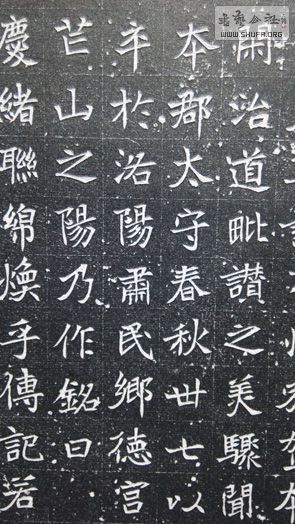 閑治道毗讃之美驟聞
本郡太守春秋丗七以
卒於洛陽肅民鄉德宫
芒山之陽乃作銘曰
慶緒聯綿煥乎傳記若
WWW.SHUFA.ORG